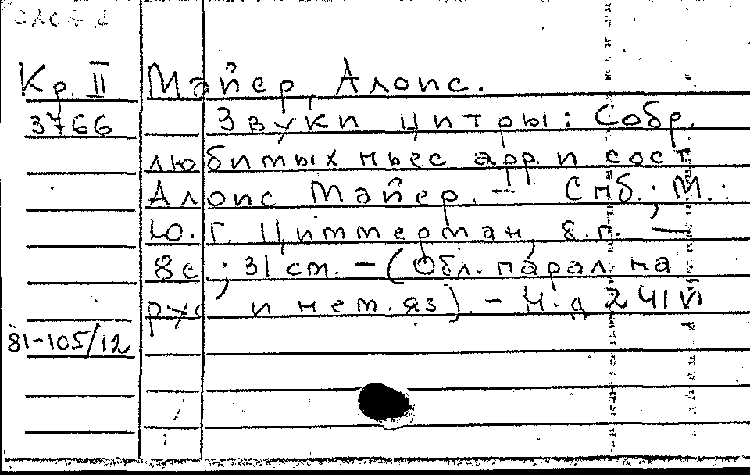 Кр. II Майер, Алоис.
3766 Звуки цитры: Собр.
любимых пьес арр. и сост.
Алоис Майер. — Спб.; М.:
Ю. Г. Циммерман, б.г. —
8 с.; 31 см. — (Обл. парал. на
рус и нем. яз). — Н.д. 241И
81-105/12